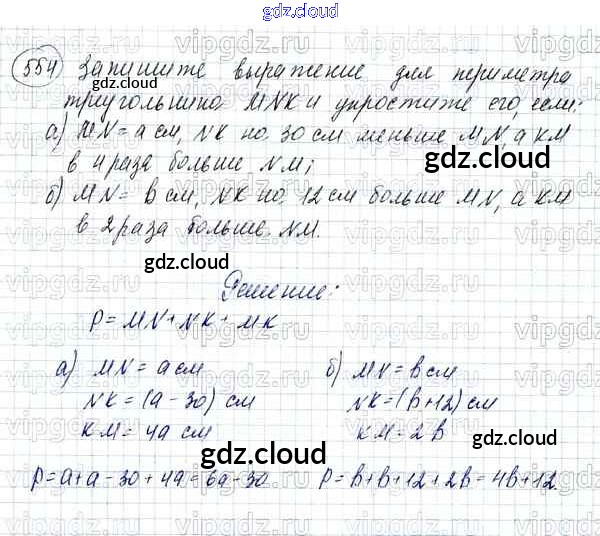 gdz.cloud
554) Запишите выражение для периметра
треугольника MNK и упростите его, если:
а) MN = a см, NK на 30 см меньше MN, а KM
в 4 раза больше NM;
б) MN = b см, NK на 12 см больше MN, а KM
в 2 раза больше NM.
Решение:
P = MN + NK + MK
а) MN = a см
NK = (a - 30) см
KM = 4a см
P = a + a - 30 + 4a = 6a - 30
б) MN = b см
NK = (b + 12) см
KM = 2b
P = b + b + 12 + 2b = 4b + 12.
gdz.cloud
gdz.cloud
gdz.cloud
gdz.cloud
gdz.cloud
gdz.cloud
gdz.cloud